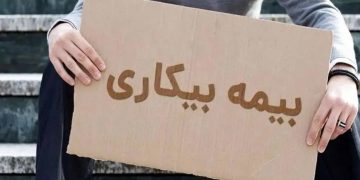 بیمه بیکاری